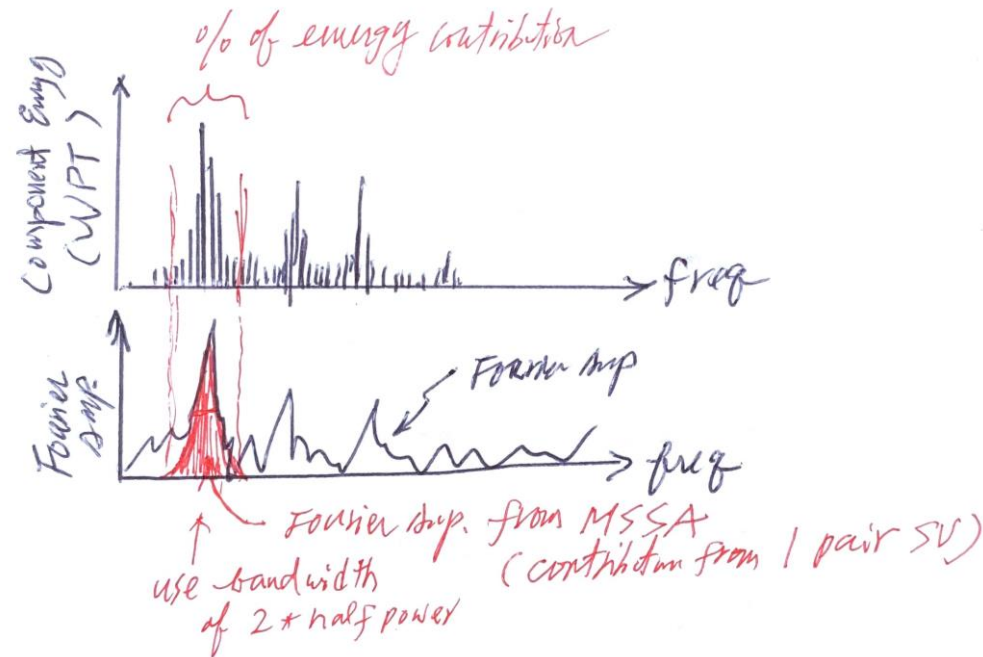 % of energy contribution
Component Energy
(WPT)
freq
Fourier
Amp.
Fourier Amp
freq
Fourier Amp. from MSSA
(contribution from 1 pair SV)
use bandwidth
of 2 * half power